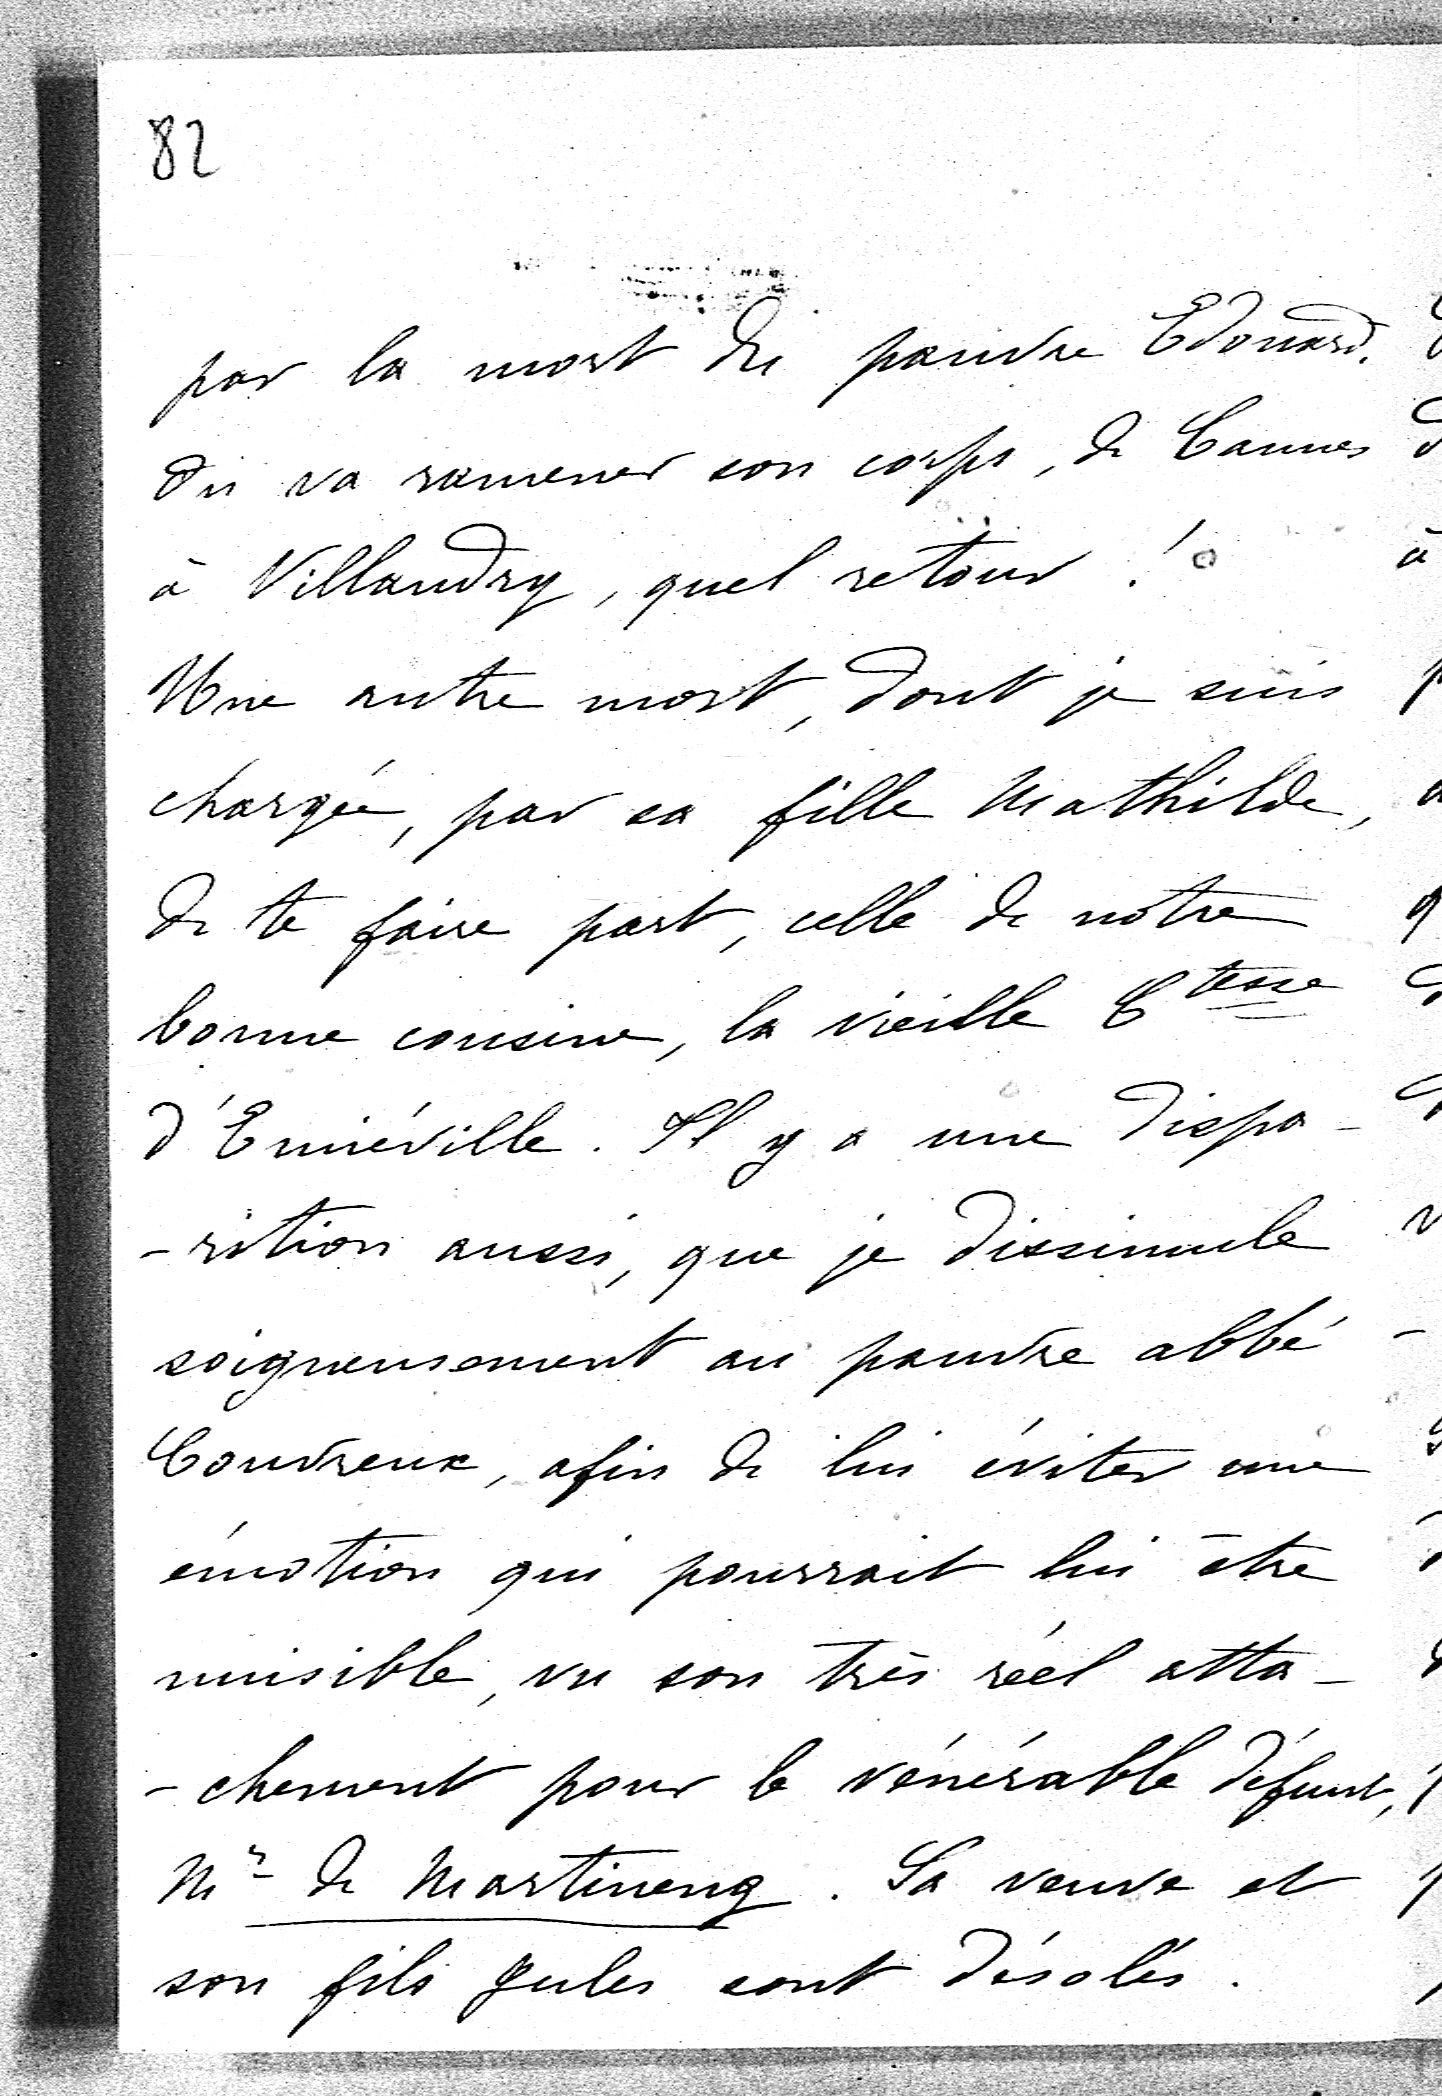 82
par la mort du pauvre Edouard.
On va ramener son corps, de Cannes
à Villandry, quel retour !
Une autre mort, dont je suis
chargée, par sa fille Mathilde,
de te faire part, celle de notre
bonne cousine, la vieille Ctesse
d'Emiéville. Il y a une dispa-
-rition aussi, que je dissimule
soigneusement au pauvre abbé
Couvreux, afin de lui éviter une
émotion qui pourrait lui être
nuisible, vu son très réel atta-
-chement pour le vénérable défunt,
Mr de Martineng. Sa veuve et
son fils Jules sont désolés.